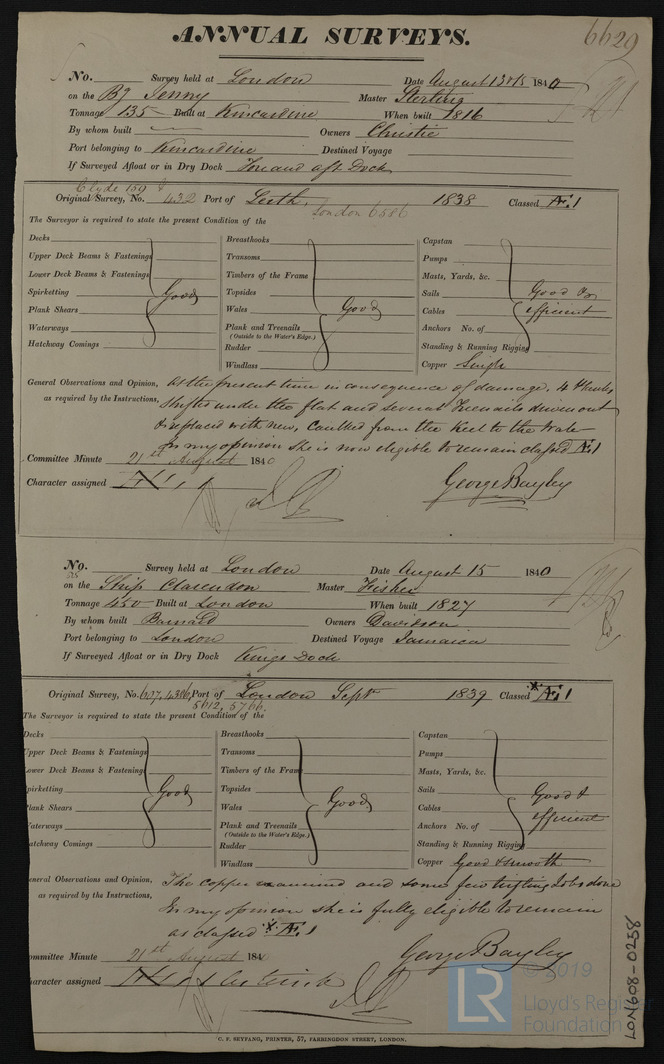 6629
ANNUAL SURVEYS.
No. Survey held at London Date August 13 & 15 1840
on the Bg Jenny Master Sterling
Tonnage 135 Built at Kincardine When built 1816
By whom built Owners Christie
Port belonging to Kincardine Destined Voyage
If Surveyed Afloat or in Dry Dock Fore and aft Dock
Clyde 159 &
Original Survey, No. 432 Port of Leith, 1838 Classed Æ.1
London 6586
The Surveyor is required to state the present Condition of the
Decks
Upper Deck Beams & Fastenings
Lower Deck Beams & Fastenings
Spirketting Good
Plank Shears
Waterways
Hatchway Comings
Breasthooks
Transoms
Timbers of the Frame
Topsides
Wales Good
Plank and Treenails
(Outside to the Water's Edge.)
Rudder
Windlass
Capstan
Pumps
Masts, Yards, &c.
Sails Good &
Cables efficient
Anchors No. of
Standing & Running Rigging
Copper Single
General Observations and Opinion, At the present time in consequence of damage, 4 Planks
as required by the Instructions, shifted under the flat and several Treenails driven out
& replaced with new, Caulked from the Keel to the Wale
In my opinion she is now eligible to remain classed Æ.1
Committee Minute 21st August 1840
Character assigned Æ 1
George Bayley
No. Survey held at London Date August 15 1840
525
on the Ship Clarendon Master Fisher
Tonnage 450 Built at London When built 1827
By whom built Barnard Owners Davidson
Port belonging to London Destined Voyage Jamaica
If Surveyed Afloat or in Dry Dock Kings Dock
Original Survey, No. 607, 4306, Port of London Sept 1839 Classed * Æ 1
5612, 5766.
The Surveyor is required to state the present Condition of the
Decks
Upper Deck Beams & Fastenings
Lower Deck Beams & Fastenings
pirketting Good
lank Shears
aterways
atchway Comings
Breasthooks
Transoms
Timbers of the Frame
Topsides
Wales Good
Plank and Treenails
(Outside to the Water's Edge.)
Rudder
Windlass
Capstan
Pumps
Masts, Yards, &c.
Sails Good &
Cables efficient
Anchors No. of
Standing & Running Rigging
Copper Good & smooth
eneral Observations and Opinion, The copper examined and some few trifling Jobs done
as required by the Instructions, In my opinion she is fully eligible to remain
as classed * Æ 1
ommittee Minute 21st August 1840
haracter assigned Æ 1
George Bayley
C. F. SEYFANG, PRINTER, 57, FARRINGDON STREET, LONDON.
LON608-0238
© 2019
LR
Lloyd's Register
Foundation